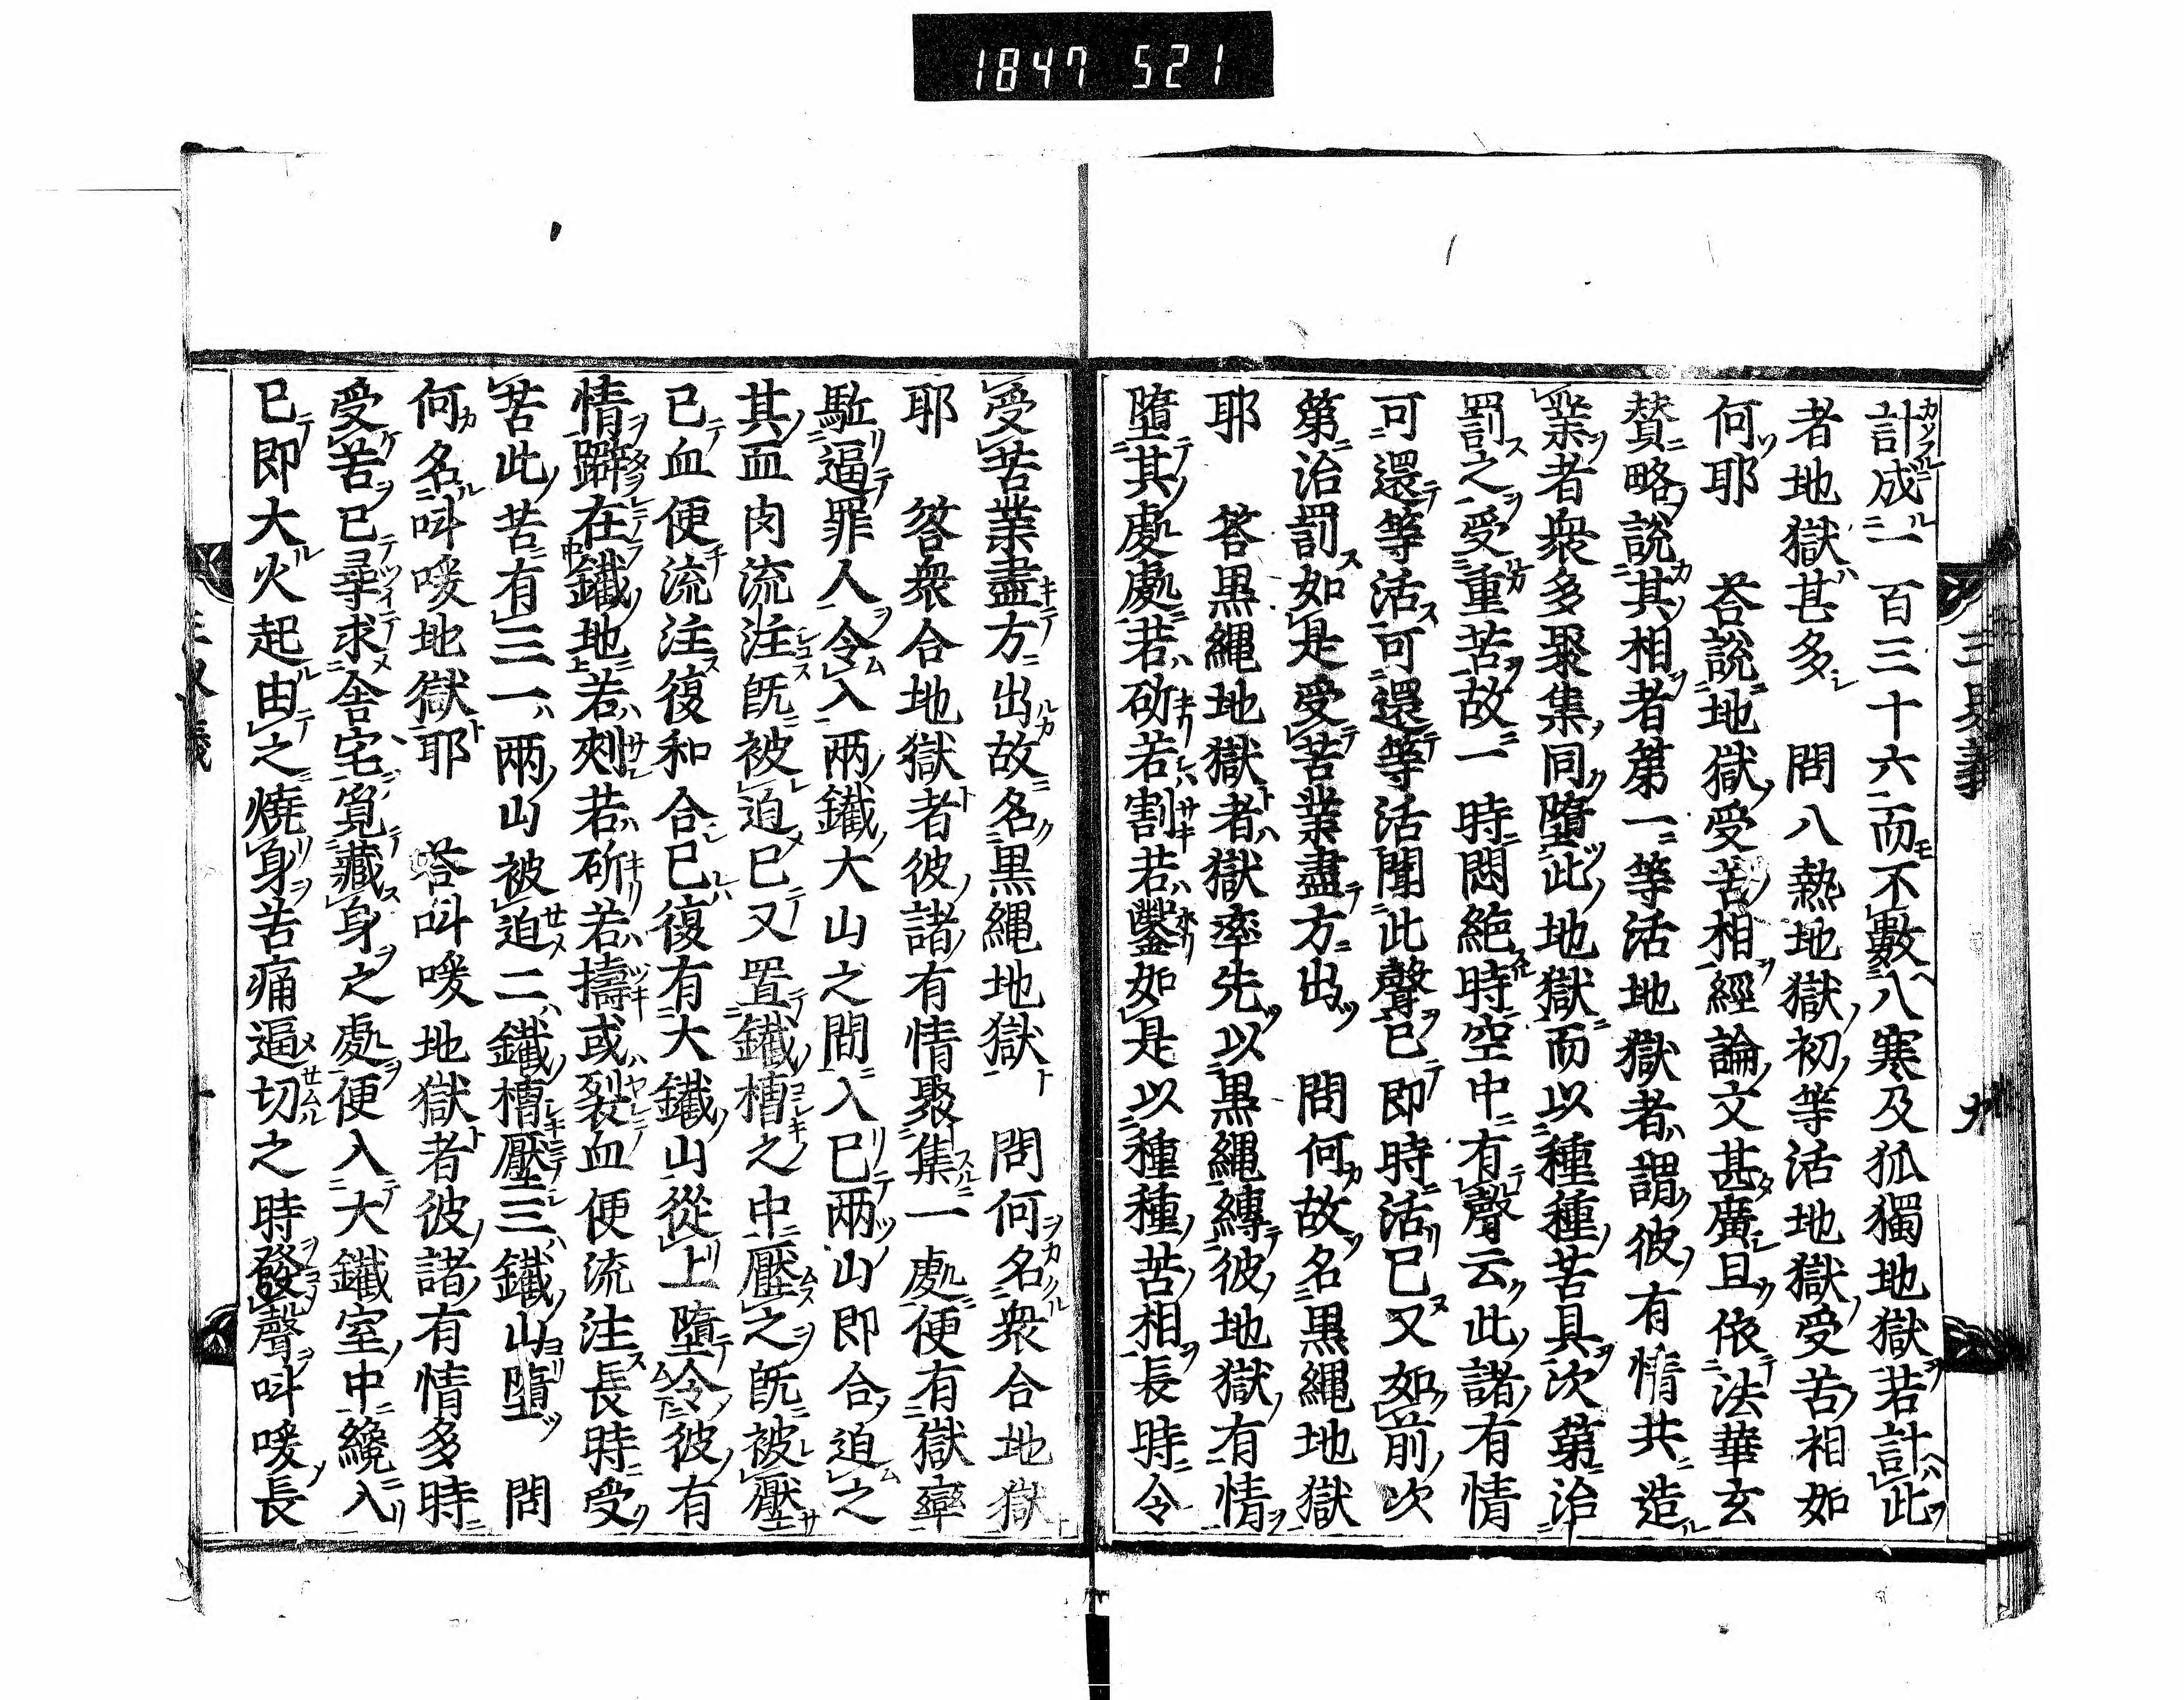 1847 521
計成一百三十六而不數八寒及狐獨地獄若計此
者地獄甚多　問八熱地獄初等活地獄受苦相如
何耶　答說地獄受苦相經論文甚廣且依法華玄
賛略說其相者第一等活地獄者謂彼有情共造
業者衆多聚集同墮此地獄而以種種苦具次第治
罰之受重苦故一時悶絶時空中有聲云此諸有情
可還等活可還等活聞此聲已即時活已又如前次
第治罰如是受苦業盡方出　問何故名黒繩地獄
耶　答黒繩地獄者獄率先以黒繩縳彼地獄有情
墮其處處若斫若割若鑿如是以種種苦相長時令
受苦業盡方出故名黒繩地獄　問何名衆合地獄
耶　答衆合地獄者彼諸有情聚集一處便有獄率
駈逼罪人令入兩鐵大山之間入已兩山即合迫之
其血肉流注既被迫已又置鐵槽之中壓之既被壓
已血便流注復和合已復有大鐵山從上墮令彼有
情躃在鐵地若刾若斫若擣或裂血便流注長時受
苦此苦有三一兩山被迫二鐵槽壓三鐵山墮　問
何名叫喚地獄耶　答叫喚地獄者彼諸有情多時
受苦已尋求舎宅覓藏身之處便入大鐵室中纔入
已即大火起由之燒身苦痛逼切之時發聲叫喚長